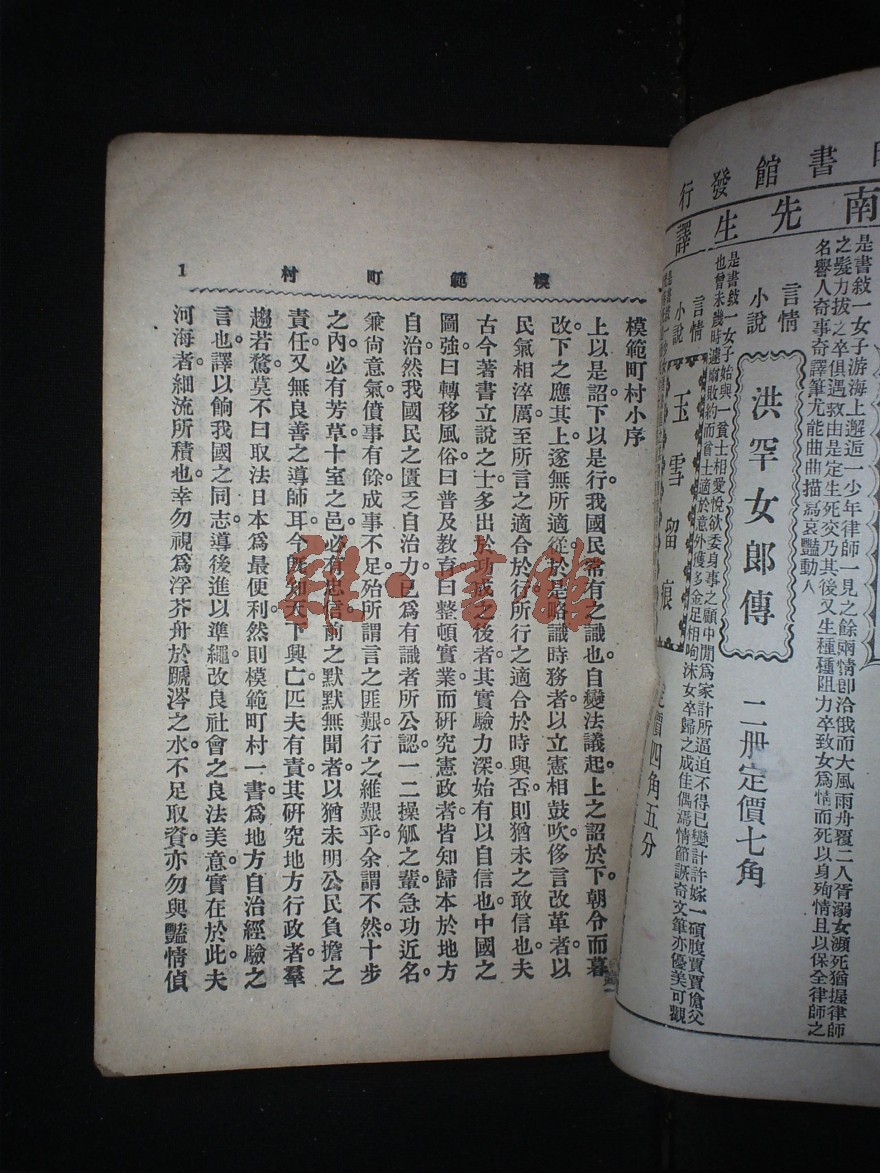 書館發行
南先生譯
是書敍一女子游海上邂逅一少年律師一見之餘兩情卽洽俄而大風雨舟覆二人胥溺女瀕死猶握律師
之髮力拔之卒俱遇救由是定生死交乃其後又生種種阻力卒致女爲情而死以身殉情且以保全律師之
名譽人奇事奇譯筆尤能曲曲描寫哀豔動人
言情
小說
洪罕女郎傳
二册定價七角
是書敍一女子始與一貧士相愛悅欲委身事之顧中間爲家計所逼迫不得已變計許嫁一碩腹賈賈傖父
也曾未幾時遽爾敗約而士適於意外獲多金足相呴沫女卒歸之成佳偶焉情節詼奇文筆亦優美可觀
言情
小說
玉雪留痕
定價四角五分
模範町村
1
模範町村小序
上以是詔下以是行我國民常有之議也自變法議起上之詔於下。朝令而暮
改下之應其上遂無所適從於是略識時務者以立憲相鼓吹侈言改革者以
民氣相淬厲至所言之適合於行所行之適合於時與否則猶未之敢信也夫
古今著書立說之士多出於功成之後者其實驗力深始有以自信也中國之
圖強曰轉移風俗曰普及教育曰整頓實業而研究憲政者皆知歸本於地方
自治然我國民之匱乏自治力已爲有識者所公認一二操觚之輩急功近名。
兼尚意氣僨事有餘成事不足殆所謂言之匪艱行之維艱乎余謂不然十步
之內必有芳草十室之邑必有忠信前之默默無聞者以猶未明公民負擔之
責任又無良善之導師耳今旣知天下興亡匹夫有責其研究地方行政者羣
趨若鶩莫不曰取法日本爲最便利然則模範町村一書爲地方自治經驗之
言也。譯以餉我國之同志導後進以準繩改良社會之良法美意實在於此夫
河海者細流所積也幸勿視爲浮芥舟於蹏涔之水不足取資亦勿與豔情偵
雜·書館